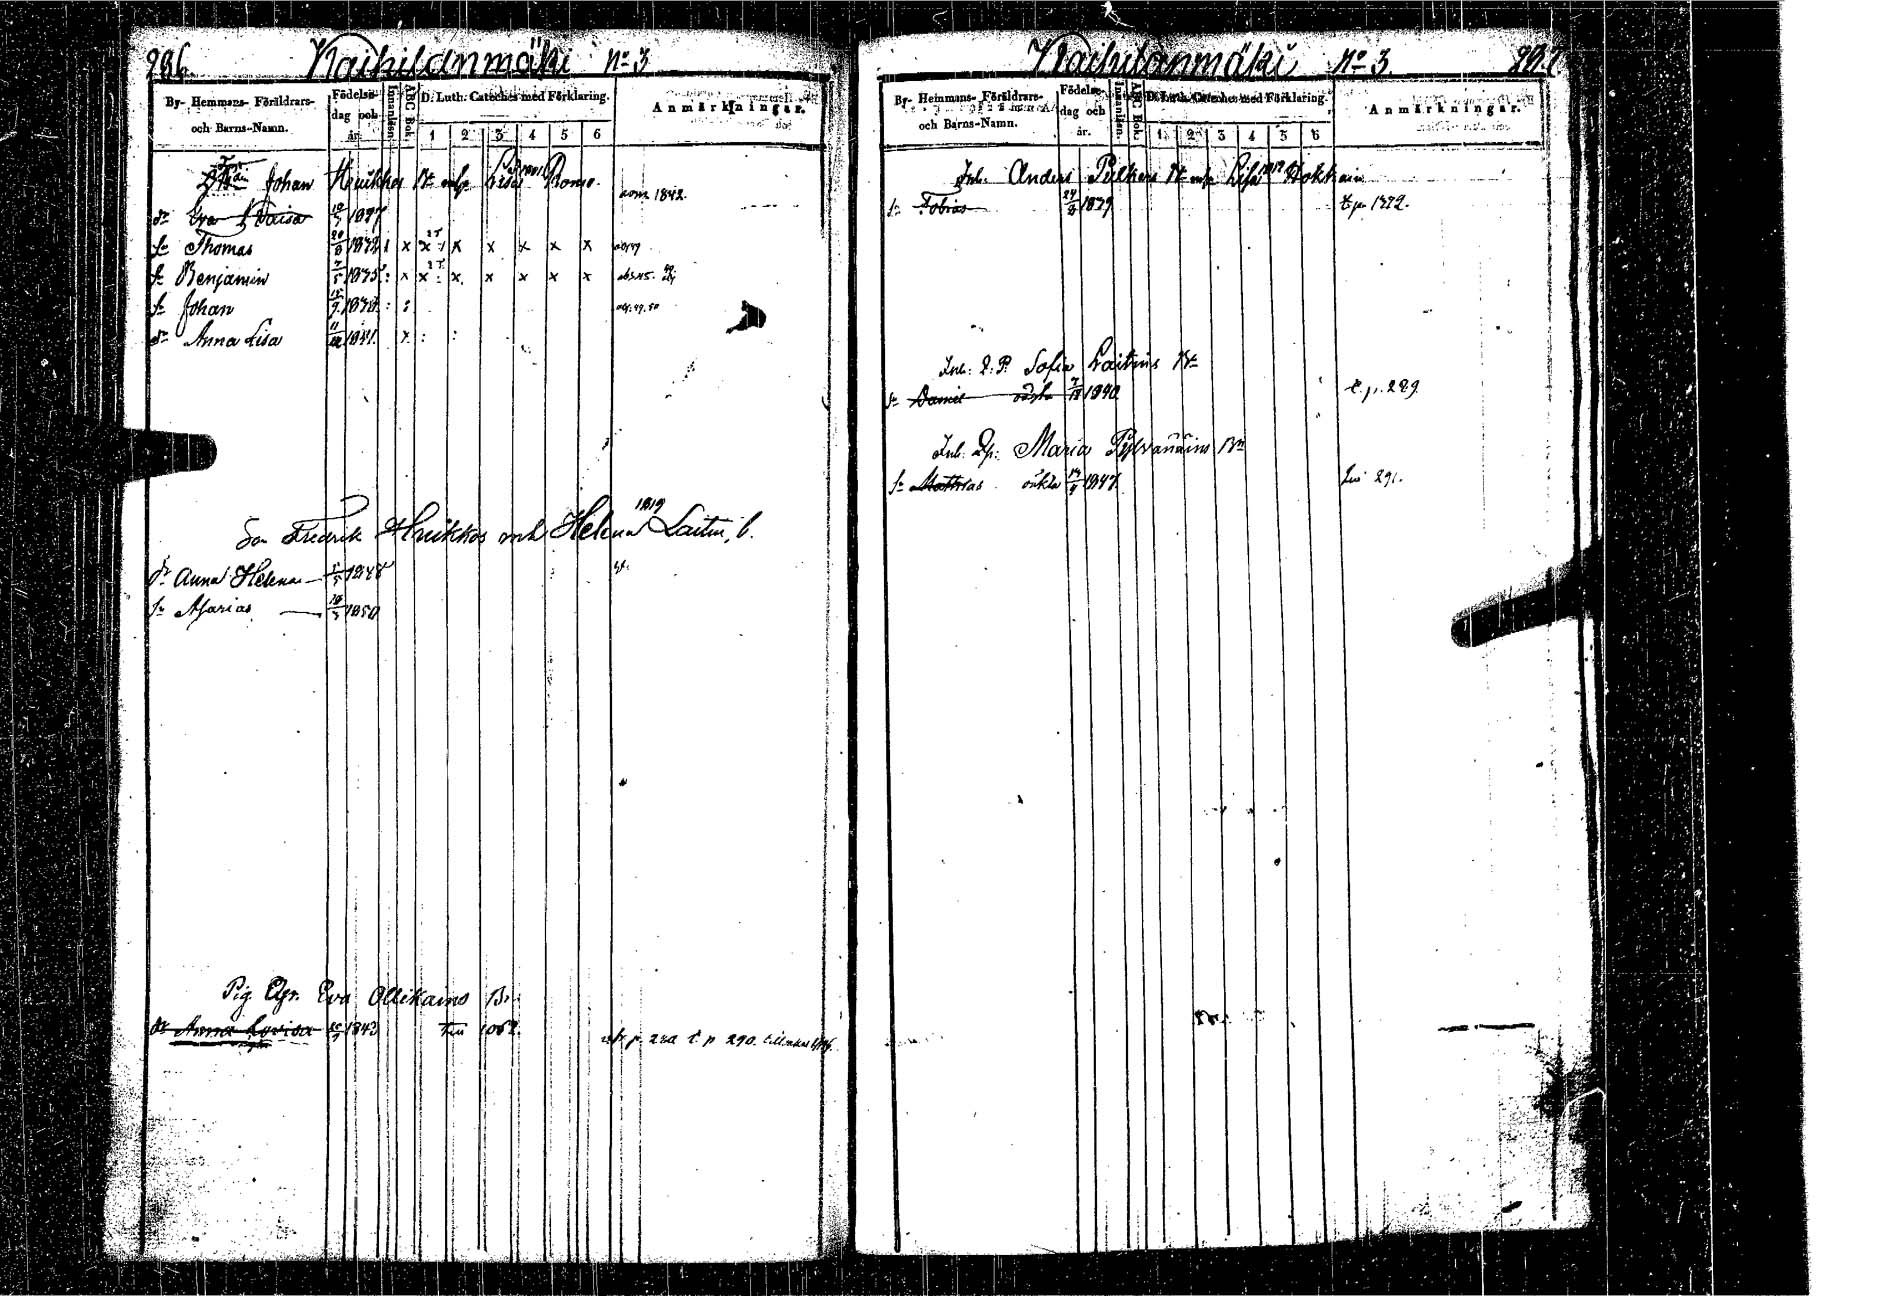 286. Kaihilanmäki No 3
By- Hemmans- Föräldrars- och Barns-Namn.
Födelse- dag och år.
Innanläsn.
ABC Bok.
D. Luth. Cateches med Förklaring.
1 2 3 4 5 6
Anmärkningar.
Johan Huikkos Bn mh Lisa Romo.
dr Eva Maisa 1827 1842.
Sn Thomas 20/8 1832 x x x x x x x
Sn Benjamin 7/5 1835 x x x x x x x
Sn Johan 1838
dr Anna Lisa 1841 x
Son Fredrik Huikkos mh Helena 1819 Laitin. b.
dr Anna Helena 1848
Sn Asarias 1850
Pig. Eva Ollikains Bn
dr Anna Lovisa 1843 p. 290.
Kaihilanmäki No 3. 287
By- Hemmans- Föräldrars- och Barns-Namn.
Födelse- dag och år.
Innanläsn.
ABC Bok.
D. Luth. Cateches med Förklaring.
1 2 3 4 5 6
Anmärkningar.
Inh. Anders Pulkens Bn mh Lisa Hokkain
Sn Tobias 24/8 1839
Inh. Q. P. Sofia Laitins Bn
Sn Daniel oäkta 1840 t. p. 289.
Inh. Qp: Maria Pylvänäins Bn
Sn Mathias oäkta 1847 291.